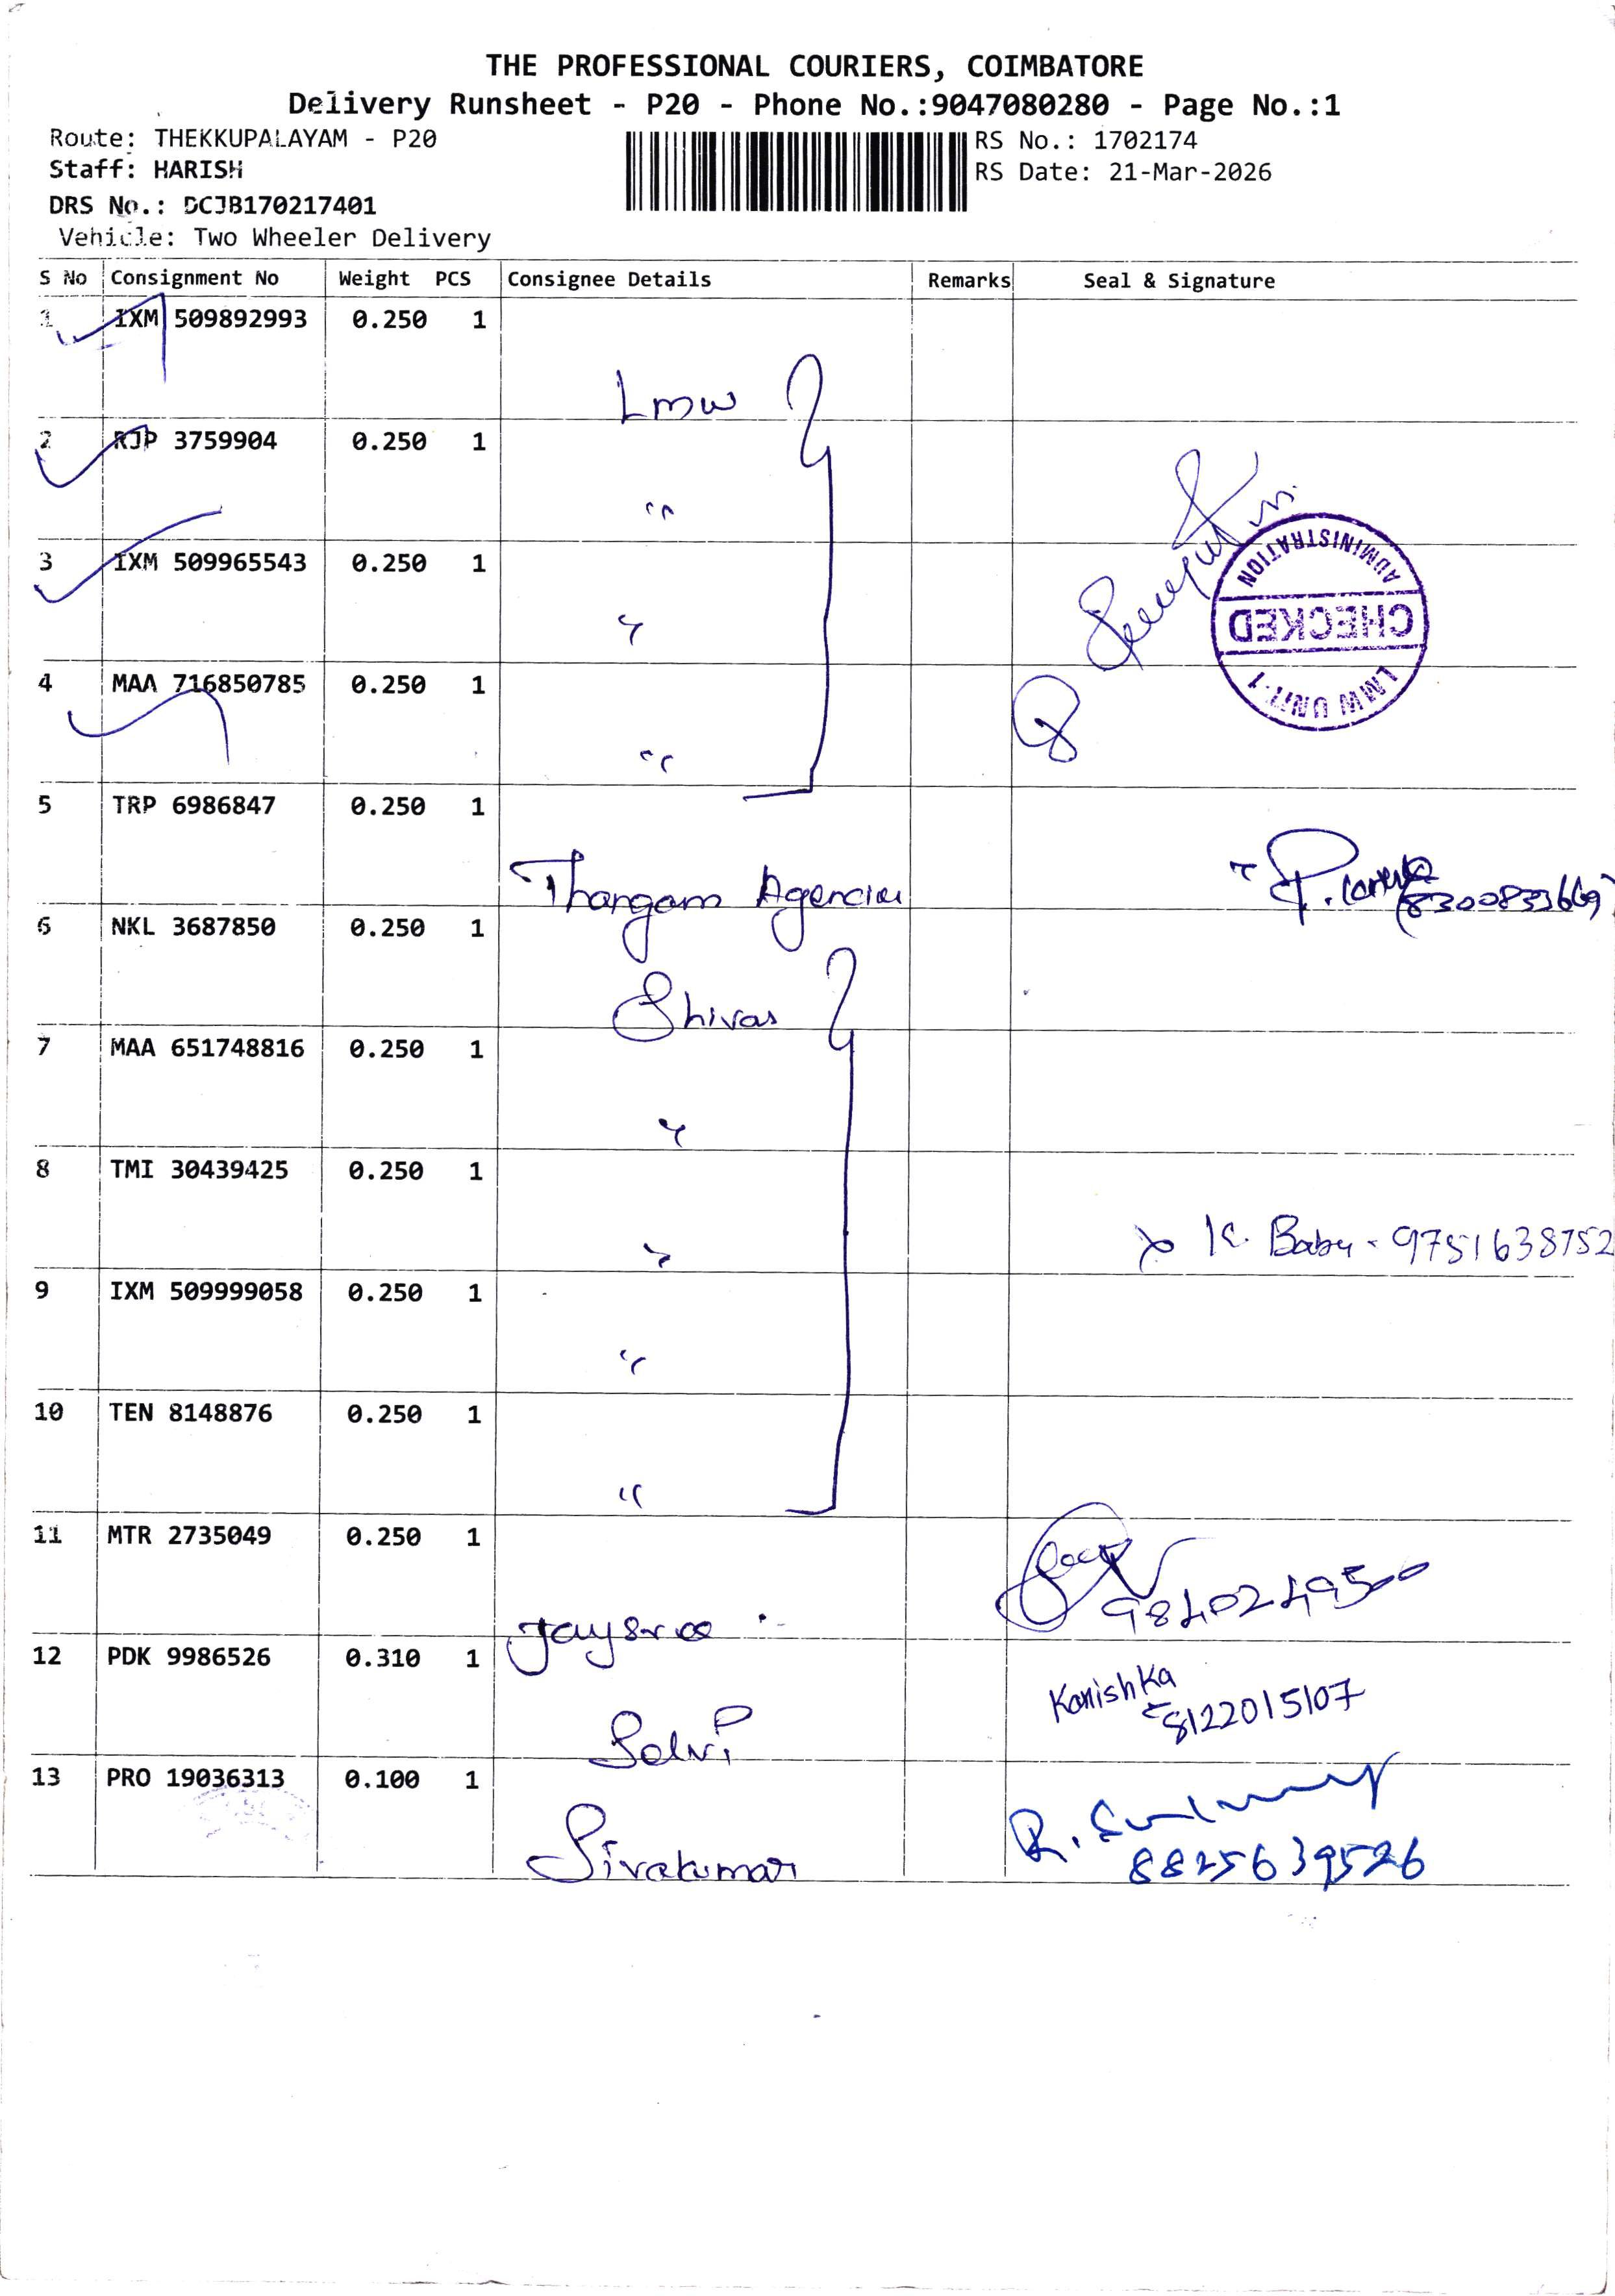 THE PROFESSIONAL COURIERS, COIMBATORE
Delivery Runsheet - P20 - Phone No.:9047080280 - Page No.:1
Route: THEKKUPALAYAM - P20
RS No.: 1702174
Staff: HARISH
RS Date: 21-Mar-2026
DRS No.: DCJB170217401
Vehicle: Two Wheeler Delivery
S No Consignment No Weight PCS Consignee Details Remarks Seal & Signature
1 IXM 509892993 0.250 1
Lmw
2 RJP 3759904 0.250 1
"
3 IXM 509965543 0.250 1
"
ADMINISTRATION
CHECKED
LMW UNIT-1
4 MAA 716850785 0.250 1
"
5 TRP 6986847 0.250 1
Thangam Agencies
6 NKL 3687850 0.250 1
Shivas
7 MAA 651748816 0.250 1
"
8 TMI 30439425 0.250 1
" K. Babu - 9751638752
9 IXM 509999058 0.250 1
"
10 TEN 8148876 0.250 1
"
11 MTR 2735049 0.250 1
Jaysree 9840249500
12 PDK 9986526 0.310 1
Kanishka
8122015107
Selvi
13 PRO 19036313 0.100 1
Sivakumar 8825639526